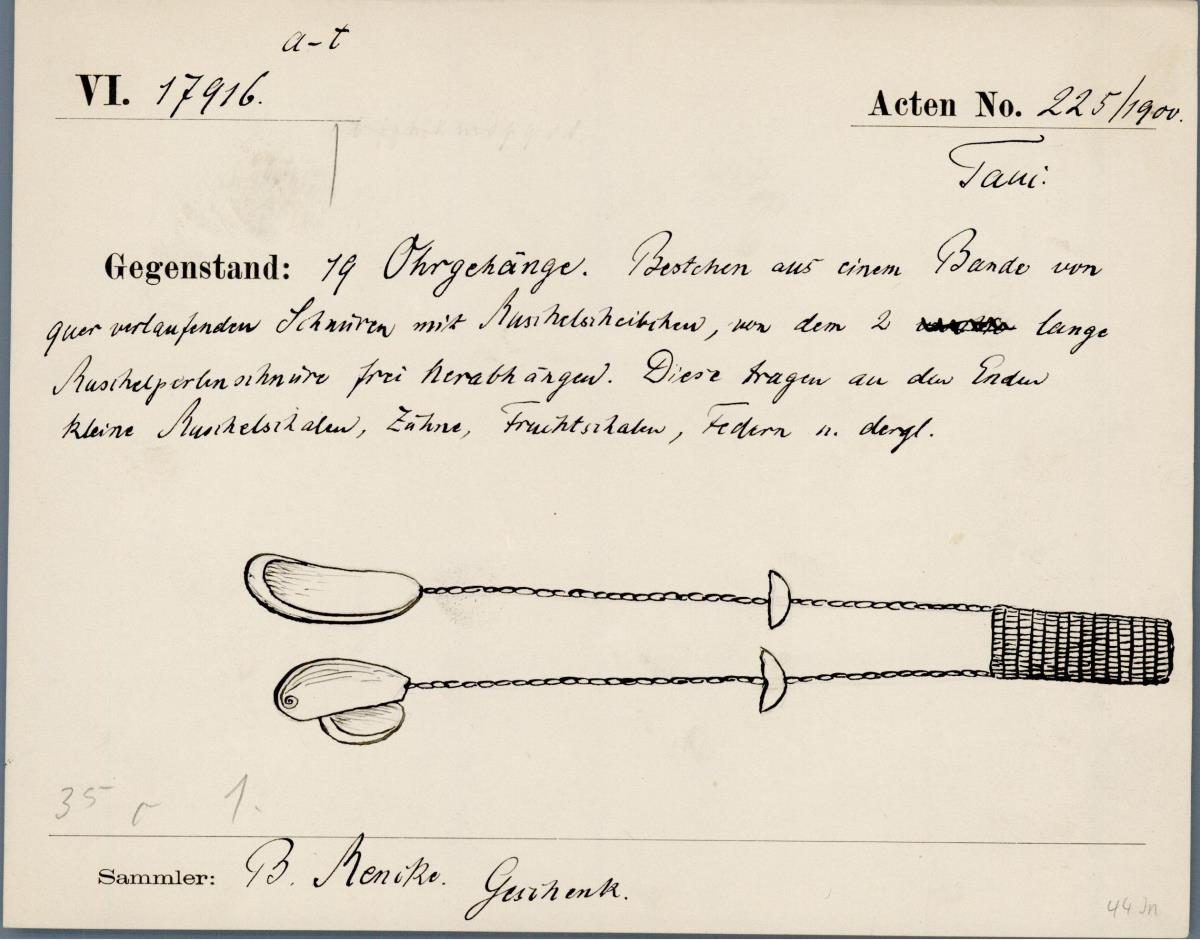 a-t
VI. 17916.
Acten No. 225/1900.
Taui.
Gegenstand: 19 Ohrgehänge. Bestehen aus einem Bande von
quer verlaufenden Schnüren mit Muschelscheibchen, von dem 2 lange
Muschelperlenschnüre frei herabhängen. Diese tragen an den Enden
kleine Muschelschalen, Zähne, Fruchtschalen, Federn u. dergl.
35 1.
Sammler: B. Mencke. Geschenk.
44